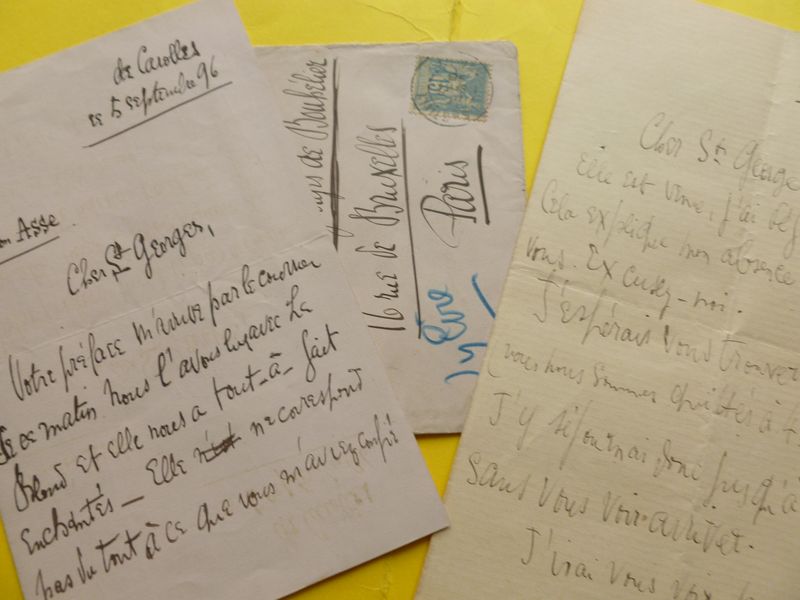 de Carolles
ce 5 septembre 96
Asse
Cher St Georges,
Votre préface m'arrive par le courrier
de ce matin. Nous l'avons lu avec Le
Blond et elle nous a tout-à-fait
enchantés — Elle ne correspond
pas du tout à ce que vous m'aviez confié
de Bouhélier
16 rue de Bruxelles
Paris
Cher St George
Elle est venue, j'ai
Cela explique mon absence
vous. Excusez-moi.
J'espérais vous trouver
nous nous sommes quittés à
J'y séjournai donc jusqu'à
sans vous voir arriver.
J'irai vous voir